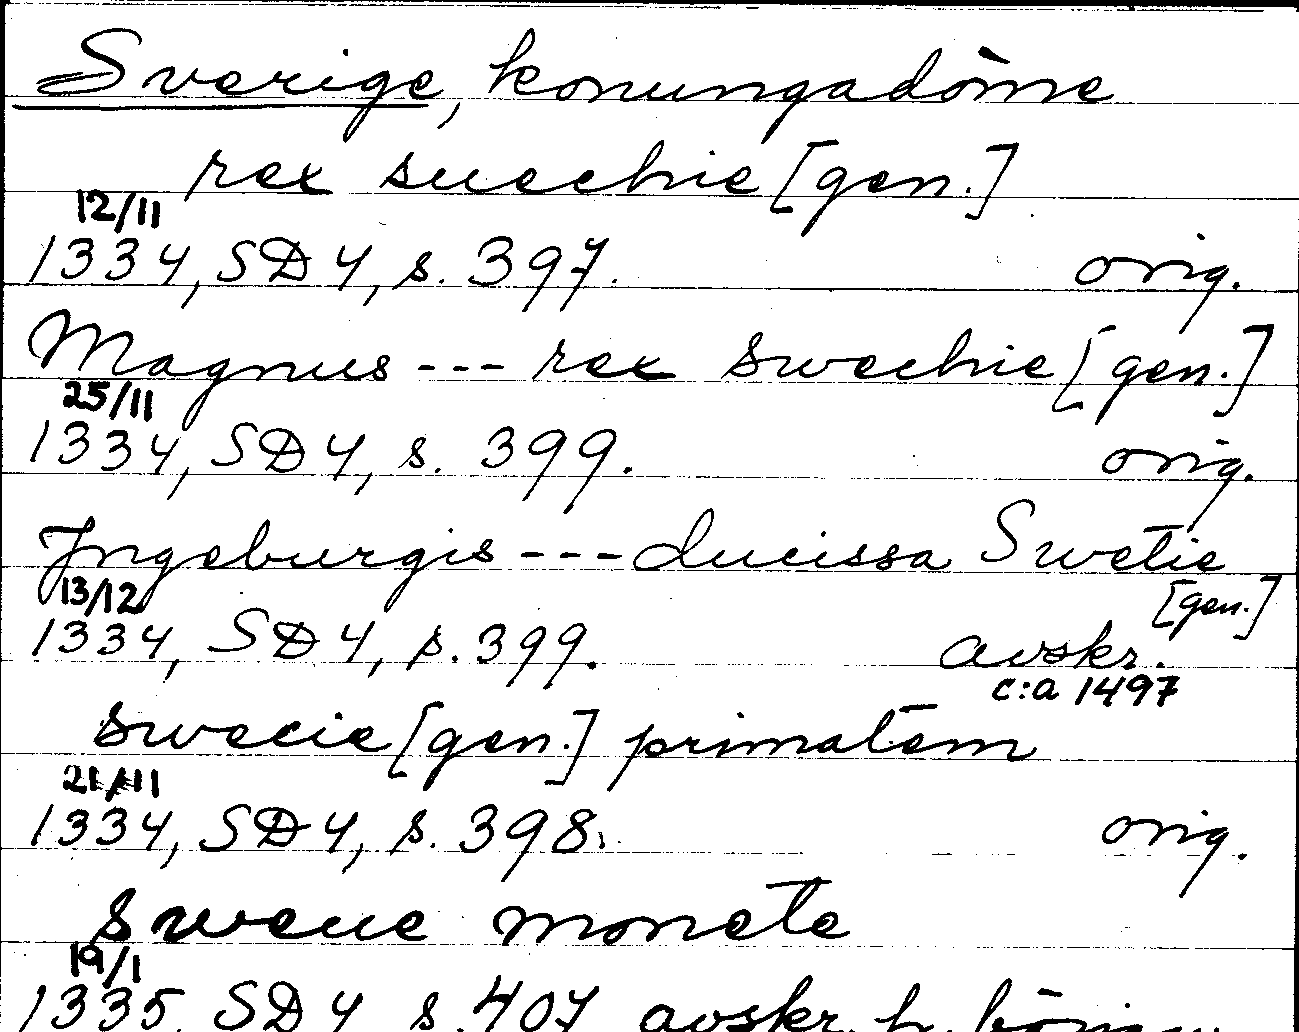 Sverige, konungadöme
rex suechie [gen.]
12/11
1334, SD 4, s. 397. orig.
Magnus --- rex swechie [gen.]
25/11
1334, SD 4, s. 399. orig.
Jngeburgis --- ducissa Swetie
[gen.]
13/12
1334, SD 4, s. 399. avskr.
c:a 1497
swecie [gen.] primatem
21/11
1334, SD 4, s. 398. orig.
swene monete
19/1
1335, SD 4 s. 407 avskr. h.